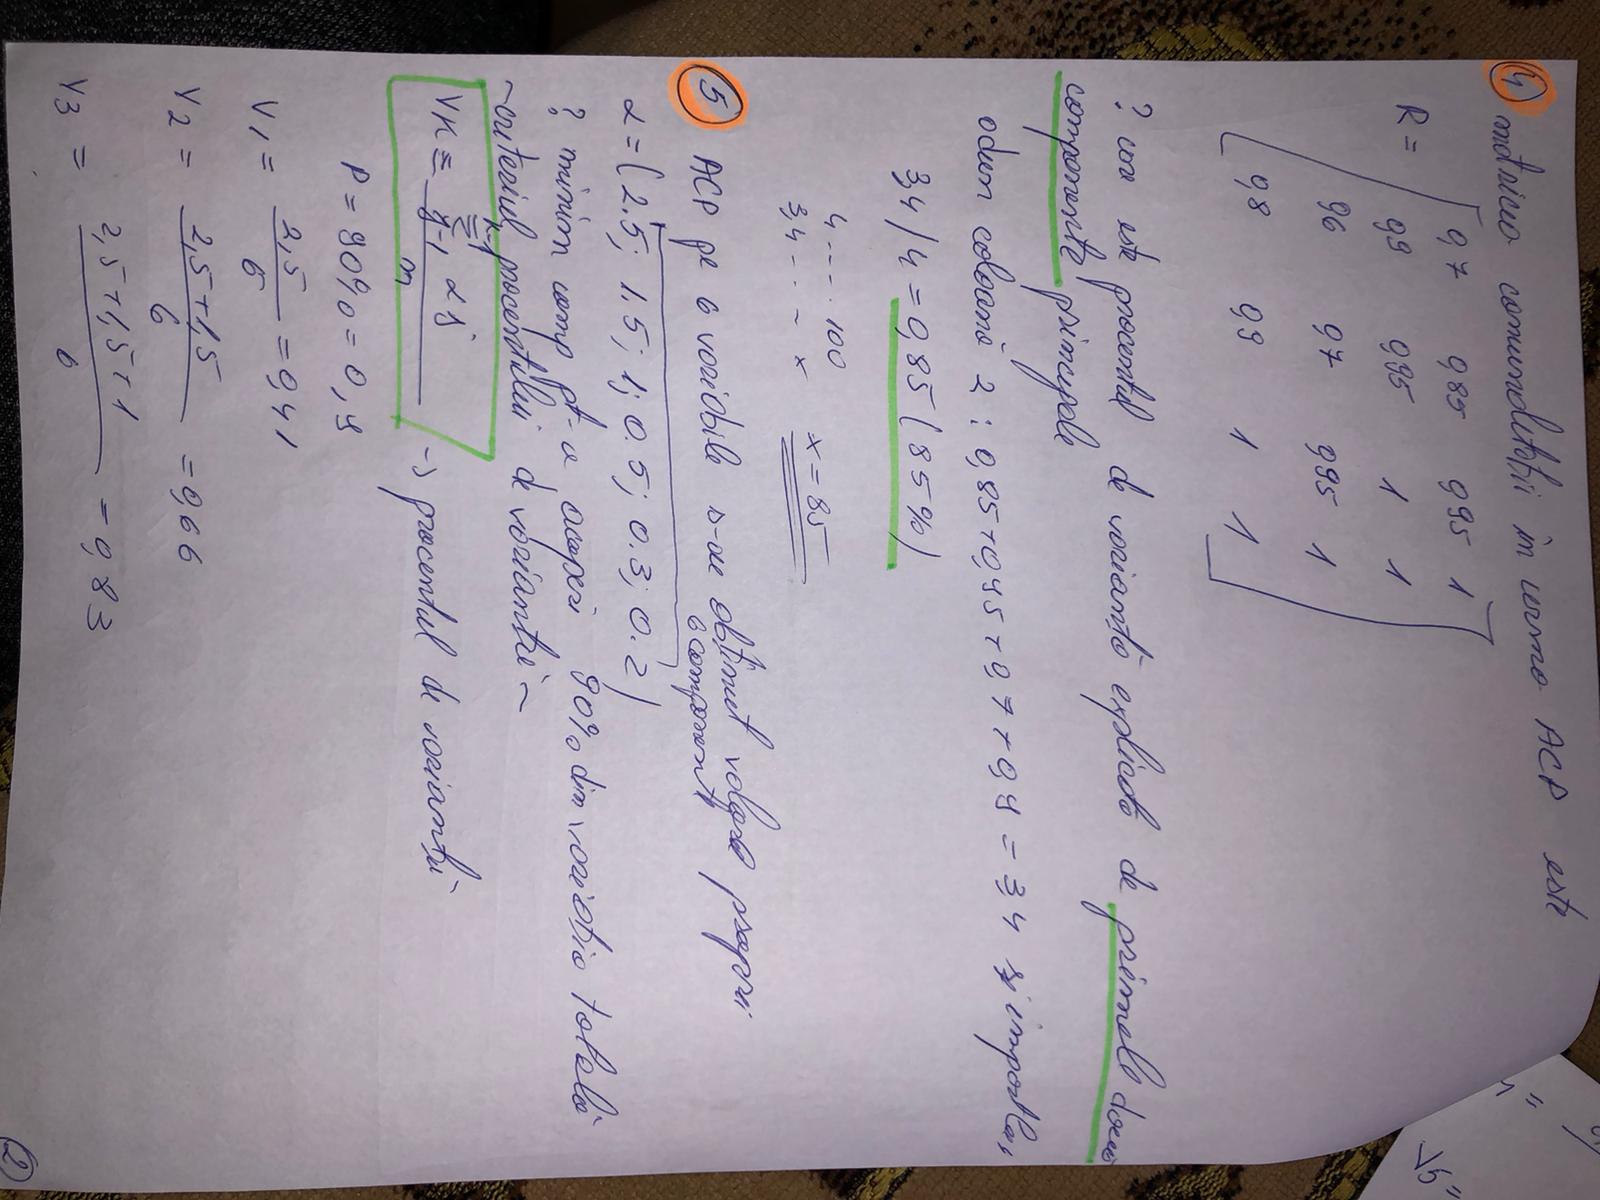 4 matricea comunalității in urma ACP este
R = 0,7 0,85 0,95 1
0,9 0,95 1 1
0,6 0,7 0,95 1
0,8 0,9 1 1
? care este procentul de varianță explicată de primele două
componente principale
adun coloana 2 : 0,85+0,95+0,7+0,9 = 3,4 și împart la 4
3,4/4 = 0,85 (85%)
4 ---- 100
3,4 -- ~ x x = 85
5 ACP pe 6 variabile s-au obținut valorile proprii
α = (2.5; 1.5; 1; 0.5; 0.3; 0.2) 6 componente
? minim comp pt. a acoperi 90% din variabia totală
~ criteriul procentului de varianță ~
VK = Σ k j=1 αj / m -> procentul de varianță
P = 90% = 0,9
V1 = 2,5 / 6 = 0,41
V2 = 2,5+1,5 / 6 = 0,66
V3 = 2,5+1,5+1 / 6 = 0,83
2